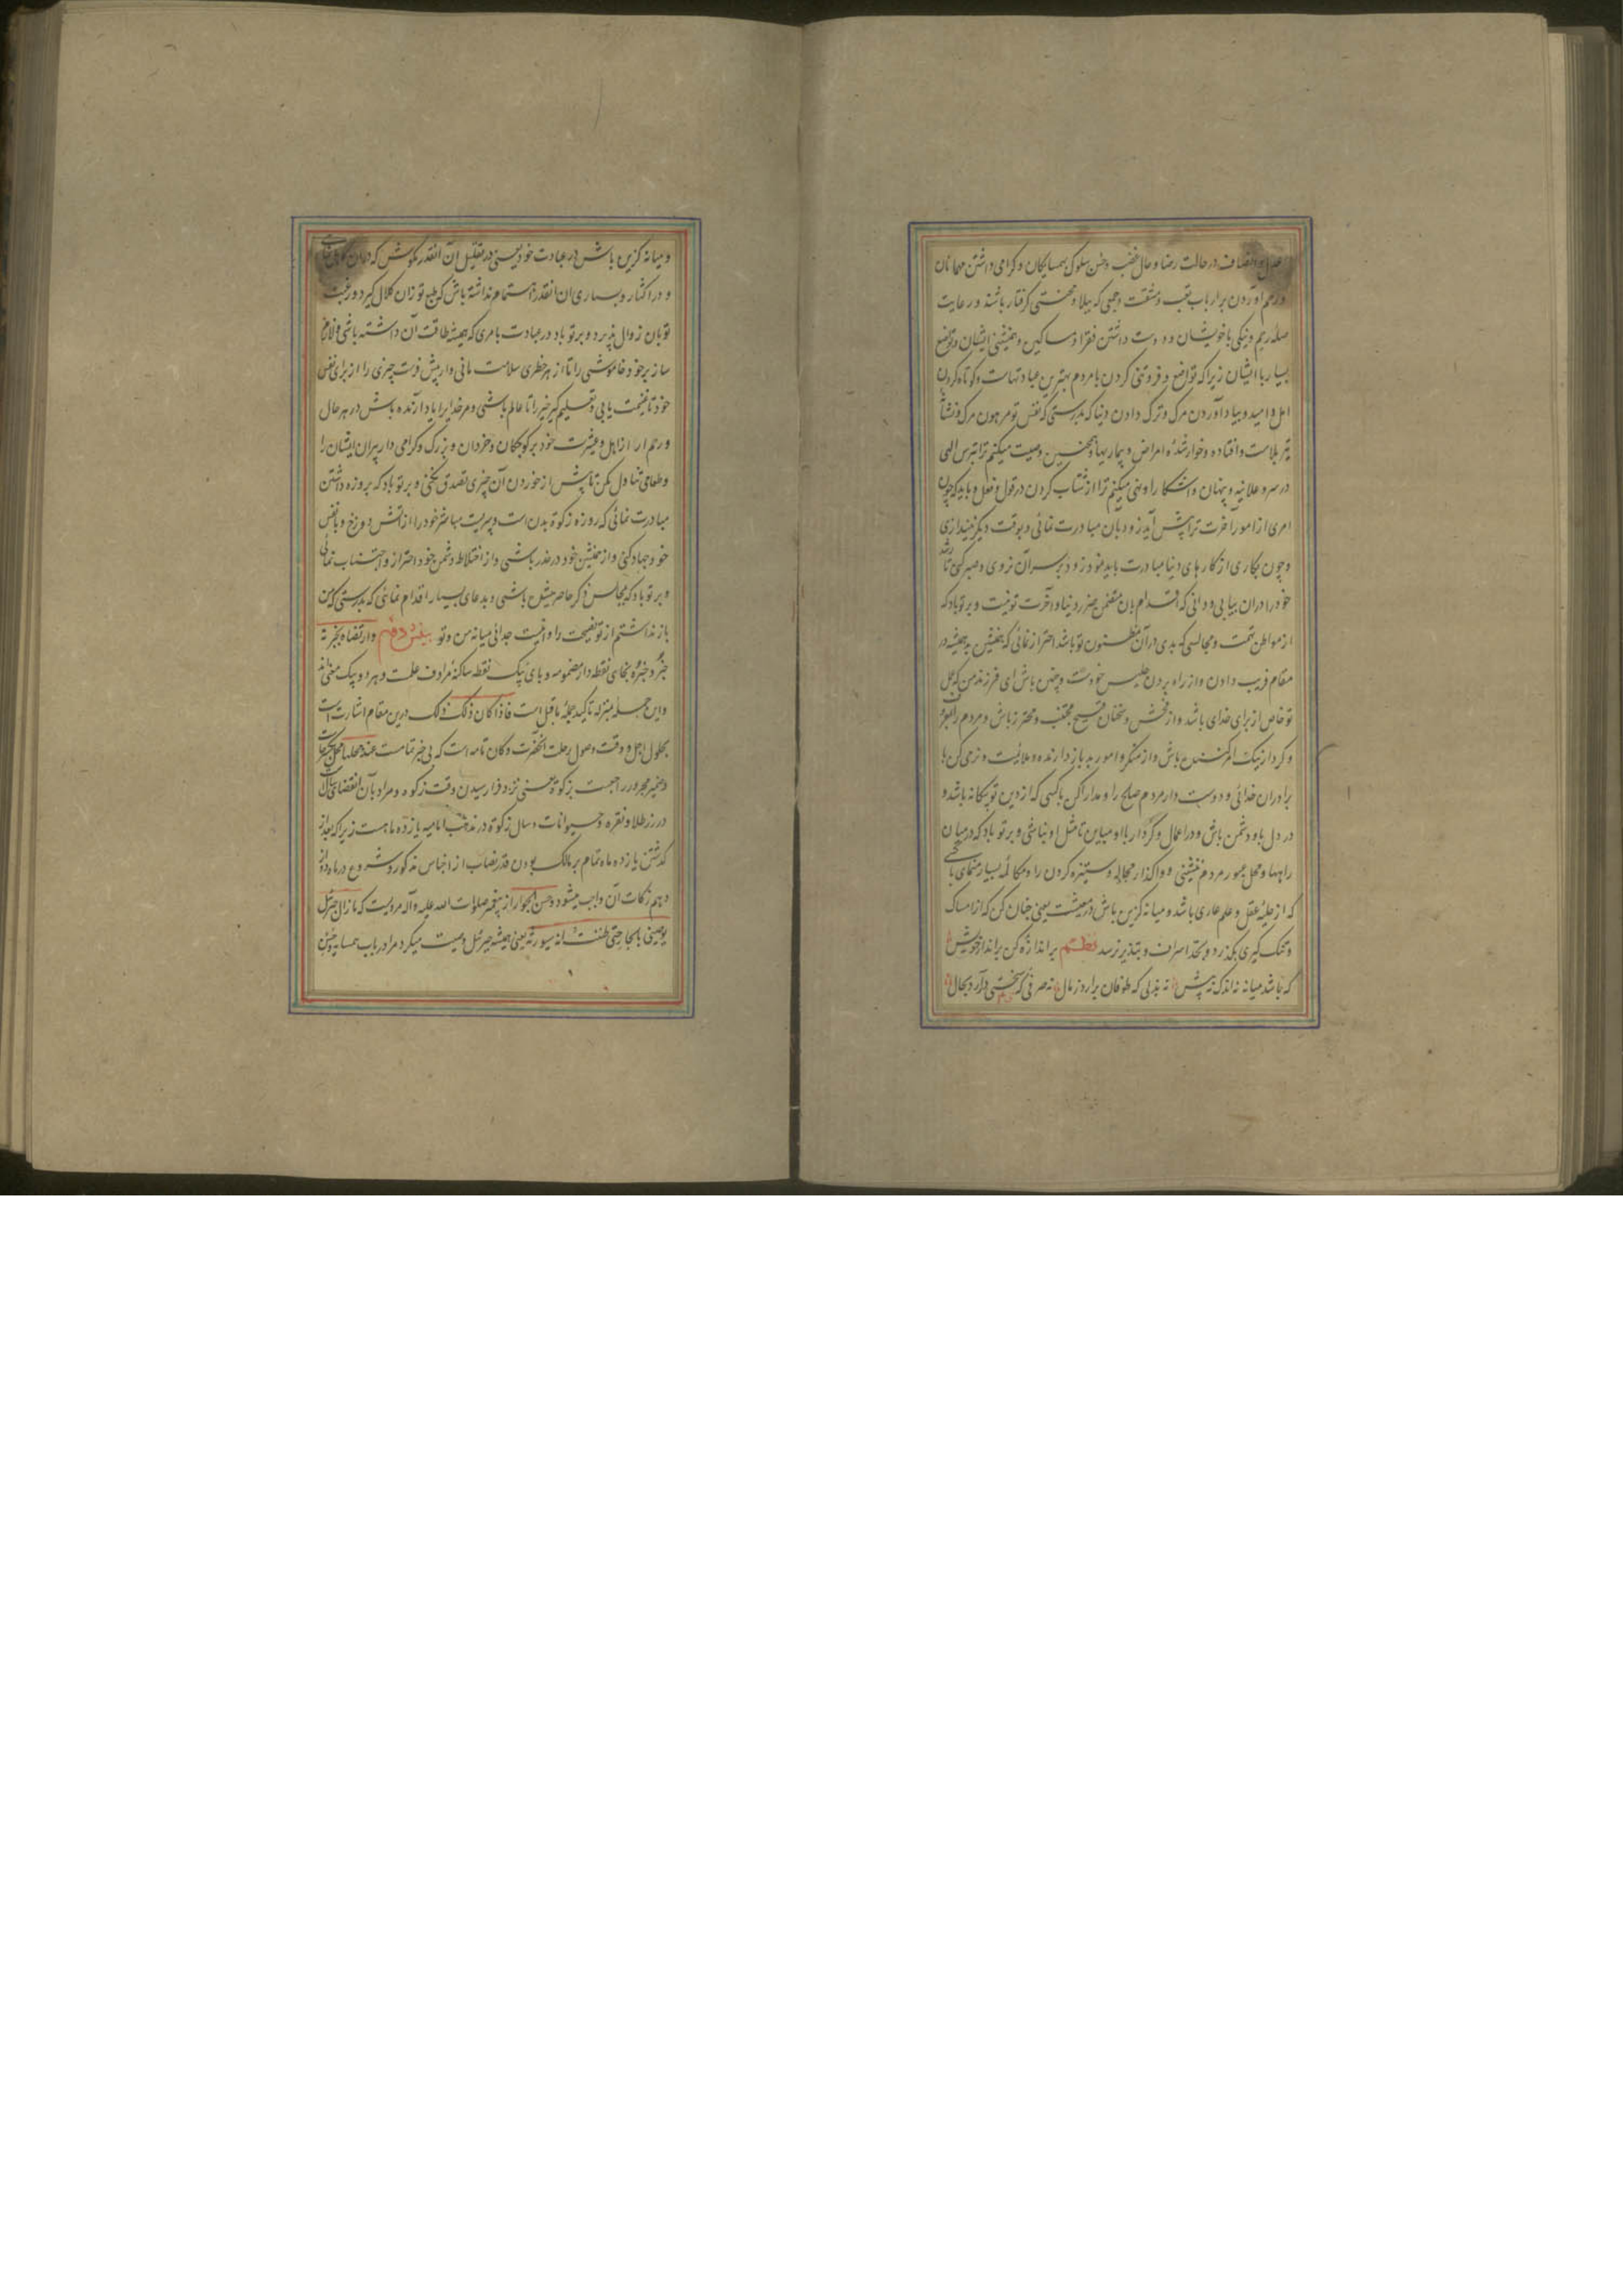 عدل و انصاف در حالت رضا و حال غضب و حسن سلوک بهمسایکان و کرامی داشتن مهمانان
و رحم آوردن بر ارباب تعب و مشقت و جمعی که ببلا و محنتی گرفتار باشند و رعایت
صله رحم و نیکی با خویشان و دوست داشتن فقرا و مساکین و همنشینی ایشان و تواضع
بسیار با ایشان زیرا که تواضع و فروتنی کردن با مردم بهترین عبادتهاست و کوتاه کردن
امل و امید و بیاد آوردن مرک و ترک دادن دنیا که بدرستی که نفس تو مرهون مرک و نشانه
تیر بلاست و افتاده و خوار شدهٔ امراض و بیماریها و همچنین وصیت میکنم ترا بترس الهی
در سر و علانیه و پنهان و آشکارا و نهی میکنم ترا از شتاب کردن در قول و فعل و باید که چون
امری از امور آخرت ترا پیش آید زود بآن مبادرت نمائی و بوقت دیکر نیندازی
و چون بکاری از کارهای دنیا مبادرت باید نمود زود بر سر آن نروی و صبر کنی تا رشد
خود را در آن بیابی و دانی که اقدام بآن متضمن ضرر دنیا و آخرت تو نیست و بر تو باد که
از مواطن تهمت و مجالسی که بدی در آن مظنون تو باشد احتراز نمائی که همنشین بد همیشه در
مقام فریب دادن و از راه بردن جلیس خودست و چنین باش ای فرزند من که عمل
تو خاص از برای خدای باشد و از فحش و سخنان قبیح مجتنب و محترز باش و مردم را بمعروف
و کردار نیک امر کننده باش و از منکر و امور بد باز دارنده و ملایمت و نرمی کن با
برادران خدائی و دوست دار مردم صلح را و مدارا کن با کسی که از دین تو بیکانه باشد و
در دل با و دشمن باش و در اعمال و کردار با او مباین تا مثل او نباشی و بر تو باد که در میان
راهها و محل عبور مردم ننشینی و واکذار مجادله و ستیزه کردن را و مکالمهٔ بسیار منمای با کسی
که از حلیهٔ عقل و علم عاری باشد و میانه کزین باش در معیشت یعنی چنان کن که از امساک
و تنک کیری بکذرد و بحد اسراف و تبذیر نرسد نظم بر اندازه کن بر اندازِ خویش
که باشد میانه نه اندک نه بیش نه بذلی که طوفان برآرد ز مال نه صرفی که سختی درآرد بحال
و میانه کزین باش در عبادت خود یعنی در تقلیل آن آنقدر مکوش که
و در اکثار و بسیاری آن آنقدر اهتمام نداشته باش که طبع تو زان کلال کیرد و رغبت
تو بآن زوال پذیرد و بر تو باد در عبادت بامری که همیشه طاقت آن داشته باشی و لازم
ساز بر خود خاموشی را تا از هر خطری سلامت مانی و از پیش فرست چیزی را از برای نفس
خود تا غنیمت یابی و تعلیم کیر خیر را تا عالم باشی و مر خدایرا یاد آرنده باش در هر حال
و رحم آر از اهل و عشیرت خود بر کوچکان و خردان و بزرک و کرامی دار پیران ایشان را
و طعامی تناول مکن تا پیش از خوردن آن چیزی تصدق نکنی و بر تو باد که بروزه داشتن
مبادرت نمائی که روزه زکوة بدن است و سپریست مباشر خود را از آتش دوزخ و با نفس
خود جهاد کنی و از همنشین خود در حذر باشی و از اختلاط دشمن خود احتراز و اجتناب نمائی
و بر تو باد که بمجالس ذکر حاضر باشی و بدعای بسیار اقدام نمائی که بدرستی که من
باز نداشتم از تو نصیحت را و اینست جدائی میانه من و تو و ارتضاه بخبرته
خبر و خبره بخای نقطه دار مضمومه و بای یک نقطه ساکنه مرادف علمت و هر دو بیک معنی‌اند
و این جمله بمنزله تاکید جملهٔ ماقبل است فاذا کان ذلک ذلک درین مقام اشارت است
بحلول اجل و وقت وصول رحلت آنحضرت و کان تامه است که بی خبر تمامست عند محلها
و ضمیر مجرور راجعست بزکوة یعنی نزد فرا رسیدن وقت زکوه و مراد بآن انقضای سال
در زر طلا و نقره و حیوانات و سال زکوة در مذهب امامیه یازده ماهست زیرا که بعد از
کذشتن یازده ماه تمام بر مالک بودن قدر نصاب از اجناس مذکور و شروع در ماه دواز
دهم زکات آن واجب میشود و حسن الجوار از پیغمبر صلوات الله علیه و آله مرویست که ما زال جبرئیل
یوصینی بالجار حتی ظننت انه سیورثه یعنی همیشه جبرئیل وصیت میکرد مرا در باب همسایه و حسن